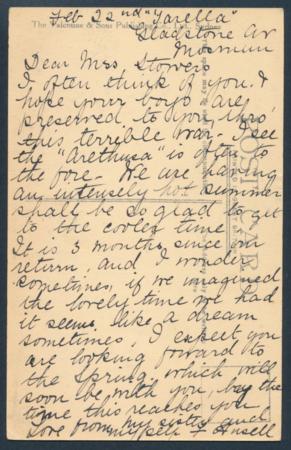 Feb 22nd "Yarella"
The Valentine & Sons Publishing Co. Ltd., Sydney
Gladstone Av
Mosman
Dear Mrs. Stowers
I often think of you. I
hope your boys are
preserved to you, thro'
this terrible war. I see
the "Arethusa" is often to
the fore. We are having
an intensely hot summer
shall be so glad to get
to the cooler time
It is 3 months, since our
return, and I wonder
sometimes, if we imagined
the lovely time we had
it seems like a dream
sometimes, I expect you
are looking forward to
the Spring, which will
soon be with you, by the
time this reaches you
Love from my sister and
myself F Ansell
POST CARD